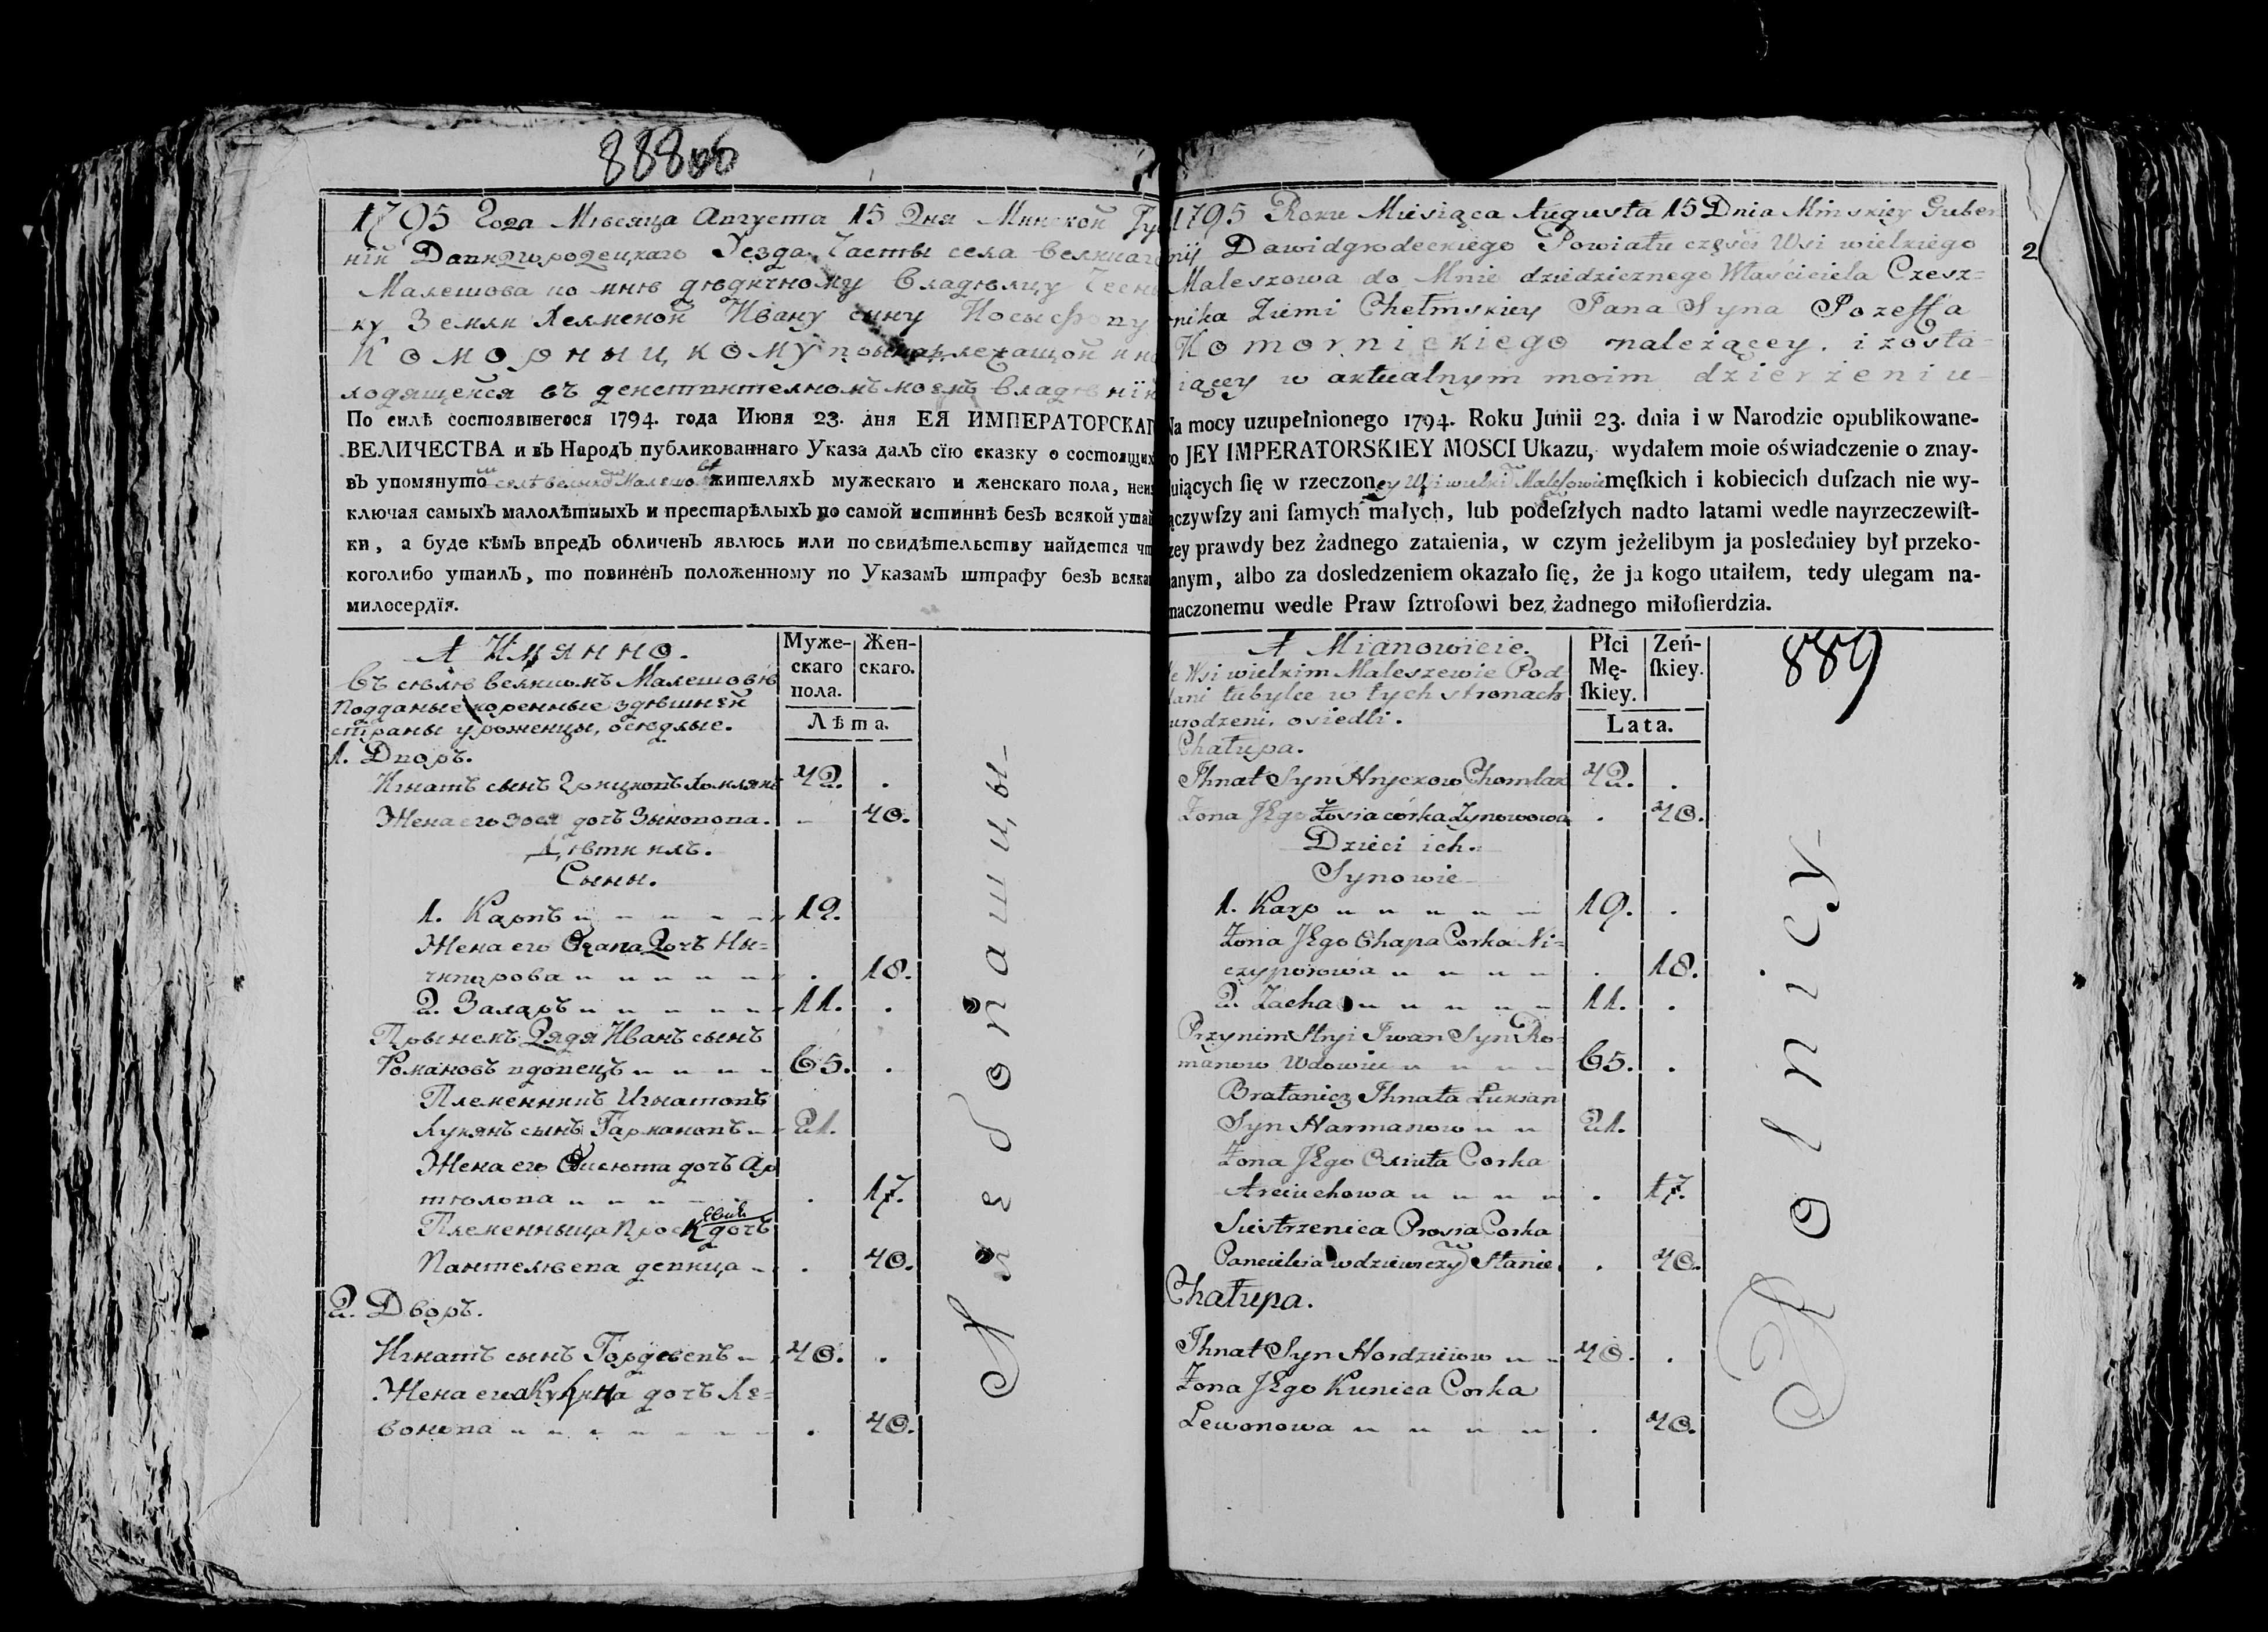 888
1795 Года Мѣсяца Августа 15 Дня Минской Гу
ніи Давидгородецкаго Уезда Часты села великаго
Малешова по мнѣ дѣдичному Владѣлцу Чесни
ку Земли Хелменой Ивану сыну Иосыфову
Коморныцкому принадлежащой и на
ходящейся въ денствителномъ моемъ владѣніи
По силѣ состоявшегося 1794. года Июня 23. дня ЕЯ ИМПЕРАТОРСКАГ
ВЕЛИЧЕСТВА и въ Народъ публикованнаго Указа далъ сїю сказку о состоящих
въ упомянутомъ селѣ великомъ Малешовѣ жителяхъ мужескаго и женскаго пола, неиз
ключая самыхъ малолѣтныхъ и престарѣлыхъ по самой истиннѣ безъ всякой утай
ки, а буде кѣмъ впредъ обличенъ явлюсь или по свидѣтельству найдется чт
коголибо утаилъ, то повиненъ положенному по Указамъ штрафу безъ всяка
милосердїя.
А Имянно.
Муже-скаго пола.
Жен-скаго.
Въ селѣ великомъ Малешовѣ
Подданые коренные здѣшней
страны уроженцы, осѣдлые.
Лѣта.
1. Дворъ.
Игнатъ сынъ Грицковъ Хомлякъ 42. .
Жена его Зося дочъ Зыновова. - 40.
Дѣти ихъ.
Сыны.
1. Карпъ 19.
Жена его Огапа Дочъ Ны=
чипорова . 18.
2. Захаръ 11. .
Прыемъ Дядя Иванъ сынъ
Романовъ вдовецъ 65. .
Племенникъ Игнатовъ
Лукянъ сынъ Гармановъ 21.
Жена его Оксюта дочъ Ар
тюхова . 17.
Племенныца Просковия дочъ
Пантелѣева девица . 40.
2. Дворъ.
Игнатъ сынъ Гордѣевъ 40. .
Жена его Куница дочъ Ле=
вонова . 40.
Хлебопашцы
1795 Roku Miesiąca Augusta 15 Dnia Minskiey Guber
nij Dawidgrodeckiego Powiatu części Wsi wielkiego
Maleszowa do Mnie dziedzicznego Właściciela Czesz=
nika Ziemi Chełmskiey Jana Syna Jozeffa
Komornickiego należącey. i zosta=
iącey w aktualnym moim dzierżeniu
Na mocy uzupełnionego 1794. Roku Junii 23. dnia i w Narodzie opublikowane-
go JEY IMPERATORSKIEY MOSCI Ukazu, wydałem moie oświadczenie o znay-
duiących ſię w rzeczoney Wsi wielkim Maleszowie męſkich i kobiecich duſzach nie wy-
łączywſzy ani ſamych małych, lub podeſzłych nadto latami wedle nayrzeczewiſt-
szey prawdy bez żadnego zataienia, w czym jeżelibym ja posledniey był przeko-
nanym, albo za dosledzeniem okazało ſię, że ja kogo utaiłem, tedy ulegam na-
znaczonemu wedle Praw ſztroſowi bez żadnego miłoſierdzia.
2
889
A Mianowicie.
Płci Mę-ſkiey.
Zeń-ſkiey.
We Wsi wielkim Maleszewie Pod
dani tubylce w tych stronach
urodzeni, osiedli.
Lata.
Chałupa.
Ihnat Syn Hryckow Chomlak 42. .
Żona JEgo Zosia córka Zynowowa . 40.
Dzieci ich.
Synowie
1. Karp 19. .
Żona JEgo Ohapa Corka Ni=
czyporowa . 18.
2. Zachar 11. .
Przynim Stryi Iwan Syn Ro=
manow Wdowiec 65. .
Bratanicz Ihnata Łukian
Syn Harmanow 21.
Żona JEgo Oxiuta Corka
Arciuchowa . 17.
Siestrzenica Prosia Corka
Panteleia w dziewiczym Stanie . 40.
Chałupa.
Ihnat Syn Hordzieiow 40. .
Żona JEgo Kunica Corka
Lewonowa . 40.
Rolnicy